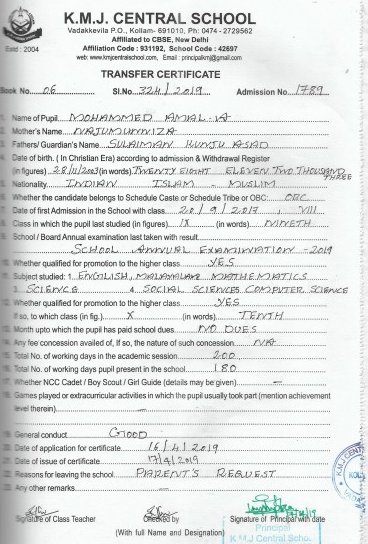 K.M.J. CENTRAL SCHOOL
Vadakkevila P.O., Kollam- 691010, Ph: 0474 - 2729562
Affiliated to CBSE, New Delhi
Affiliation Code : 931192, School Code : 42697
web: www.kmjcentralschool.com, Email : principalkmj@gmail.com
Estd : 2004
TRANSFER CERTIFICATE
Book No. 06 Sl.No. 324/2019 Admission No. 1789
1. Name of Pupil MOHAMMED AMAL .A
2. Mother's Name NAJUMUNNIZA
3. Fathers/ Guardian's Name SULAIMAN KUNJU ASAD
4. Date of birth. ( In Christian Era) according to admission & Withdrawal Register
(in figures) 28/11/2003 (in words) TWENTY EIGHT ELEVEN TWO THOUSAND THREE
5. Nationality INDIAN ISLAM - MUSLIM
6. Whether the candidate belongs to Schedule Caste or Schedule Tribe or OBC: OBC
7. Date of first Admission in the School with class 20/9/2017, VIII
8. Class in which the pupil last studied (in figures) IX (in words) NINETH
9. School / Board Annual examination last taken with result
SCHOOL ANNUAL EXAMINATION - 2019
10. Whether qualified for promotion to the higher class YES
11. Subject studied: 1. ENGLISH, MALAYALAM MATHEMATICS
3. SCIENCE 4. SOCIAL SCIENCES COMPUTER SCIENCE
12. Whether qualified for promotion to the higher class YES
If so, to which class (in fig.) X (in words) TENTH
13. Month upto which the pupil has paid school dues NO DUES
14. Any fee concession availed of, If so, the nature of such concession NA
15. Total No. of working days in the academic session 200
16. Total No. of working days pupil present in the school 180
17. Whether NCC Cadet / Boy Scout / Girl Guide (details may be given) —
18. Games played or extracurricular activities in which the pupil usually took part (mention achievement
level therein) —
19. General conduct GOOD
20. Date of application for certificate 16/4/2019
21. Date of issue of certificate 17/4/2019
22. Reasons for leaving the school PARENT'S REQUEST
23. Any other remarks —
Signature of Class Teacher Checked by Signature of Principal with date
(With full Name and Designation)
Principal
K M J Central Scho